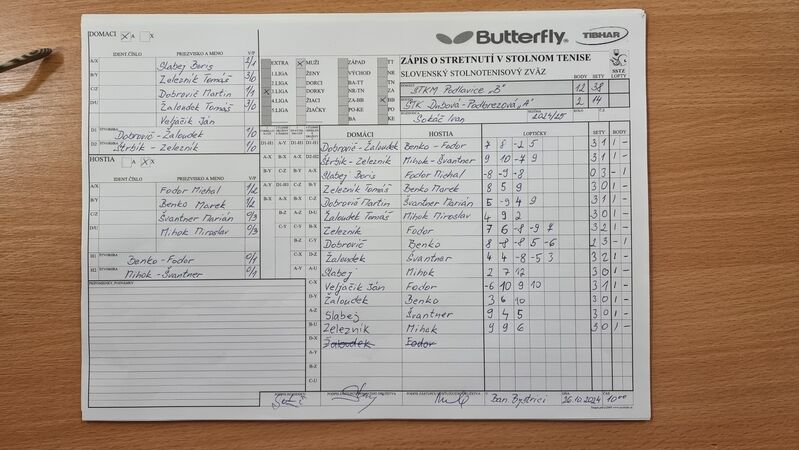 DOMÁCI X A X
Butterfly. TIBHAR
IDENT.ČÍSLO PRIEZVISKO A MENO V/P
A/X Slabej Boris 2/1
B/Y Železník Tomáš 3/0
C/Z Dobrovič Martin 1/1
D/U Žaloudek Tomáš 3/0
Veljačik Ján
D1 Dobrovič - Žaloudek 1/0
D2 ŠTVORHRA Štrbík - Železník 1/0
HOSTIA A X
IDENT.ČÍSLO PRIEZVISKO A MENO V/P
A/X Fodor Michal 1/2
B/Y Benko Marek 1/2
C/Z Švantner Marián 0/3
D/U Mihok Miroslav 0/3
H1 ŠTVORHRA Benko - Fodor 0/1
H2 Mihok - Švantner 0/1
PRIPOMIENKY, PODNETY
EXTRA MUŽI ZÁPAD TT
1.LIGA ŽENY VÝCHOD NR
2.LIGA DORCI BA-TT TN
3.LIGA DORKY NR-TN ZA
4.LIGA ŽIACI ZA-BB BB
5.LIGA ŽIAČKY PO-KE PO
BA KE
ZÁPIS O STRETNUTÍ V STOLNOM TENISE
SLOVENSKÝ STOLNOTENISOVÝ ZVÄZ
SSTZ
BODY SETY LOPTY
STKM Podlavice "B" 12 38
ŠTK Dubová-Podbrezová "A" 2 14
Sokáč Ivan 2024/25
DOMÁCI HOSTIA LOPTIČKY SETY BODY
Dobrovič - Žaloudek Benko - Fodor 7 8 -2 5 3 1 1 -
Štrbík - Železník Mihok - Švantner 9 10 -7 9 3 1 1 -
Slabej Boris Fodor Michal -8 -9 -8 0 3 - 1
Železník Tomáš Benko Marek 8 5 9 3 0 1 -
Dobrovič Martin Švantner Marián 5 -9 4 9 3 1 1 -
Žaloudek Tomáš Mihok Miroslav 4 9 2 3 0 1 -
Železník Fodor 7 6 -8 -9 7 3 2 1 -
Dobrovič Benko 8 -8 -8 5 -6 2 3 - 1
Žaloudek Švantner 4 4 -8 -5 3 3 2 1 -
Slabej Mihok 2 7 12 3 0 1 -
Veljačik Ján Fodor -6 10 9 10 3 1 1 -
Žaloudek Benko 3 6 10 3 0 1 -
Slabej Švantner 9 4 5 3 0 1 -
Železník Mihok 9 9 6 3 0 1 -
Žaloudek Fodor
Ban. Bystrici 26.10.2024 10 00